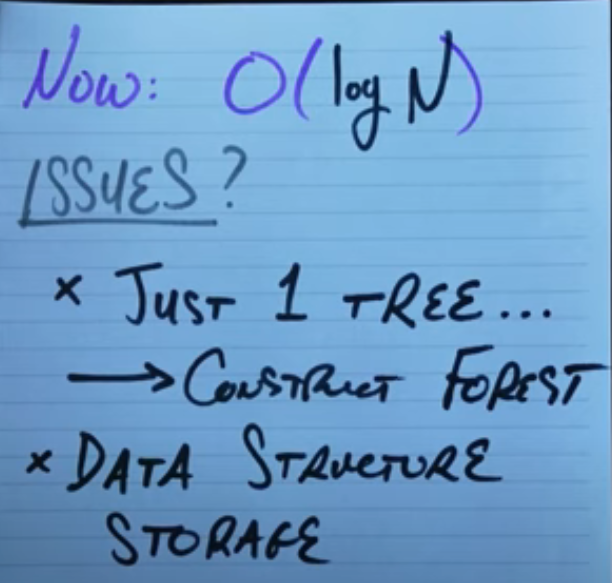 Now: O(log N)
ISSUES?
× JUST 1 TREE...
→ CONSTRUCT FOREST
× DATA STRUCTURE
STORAGE